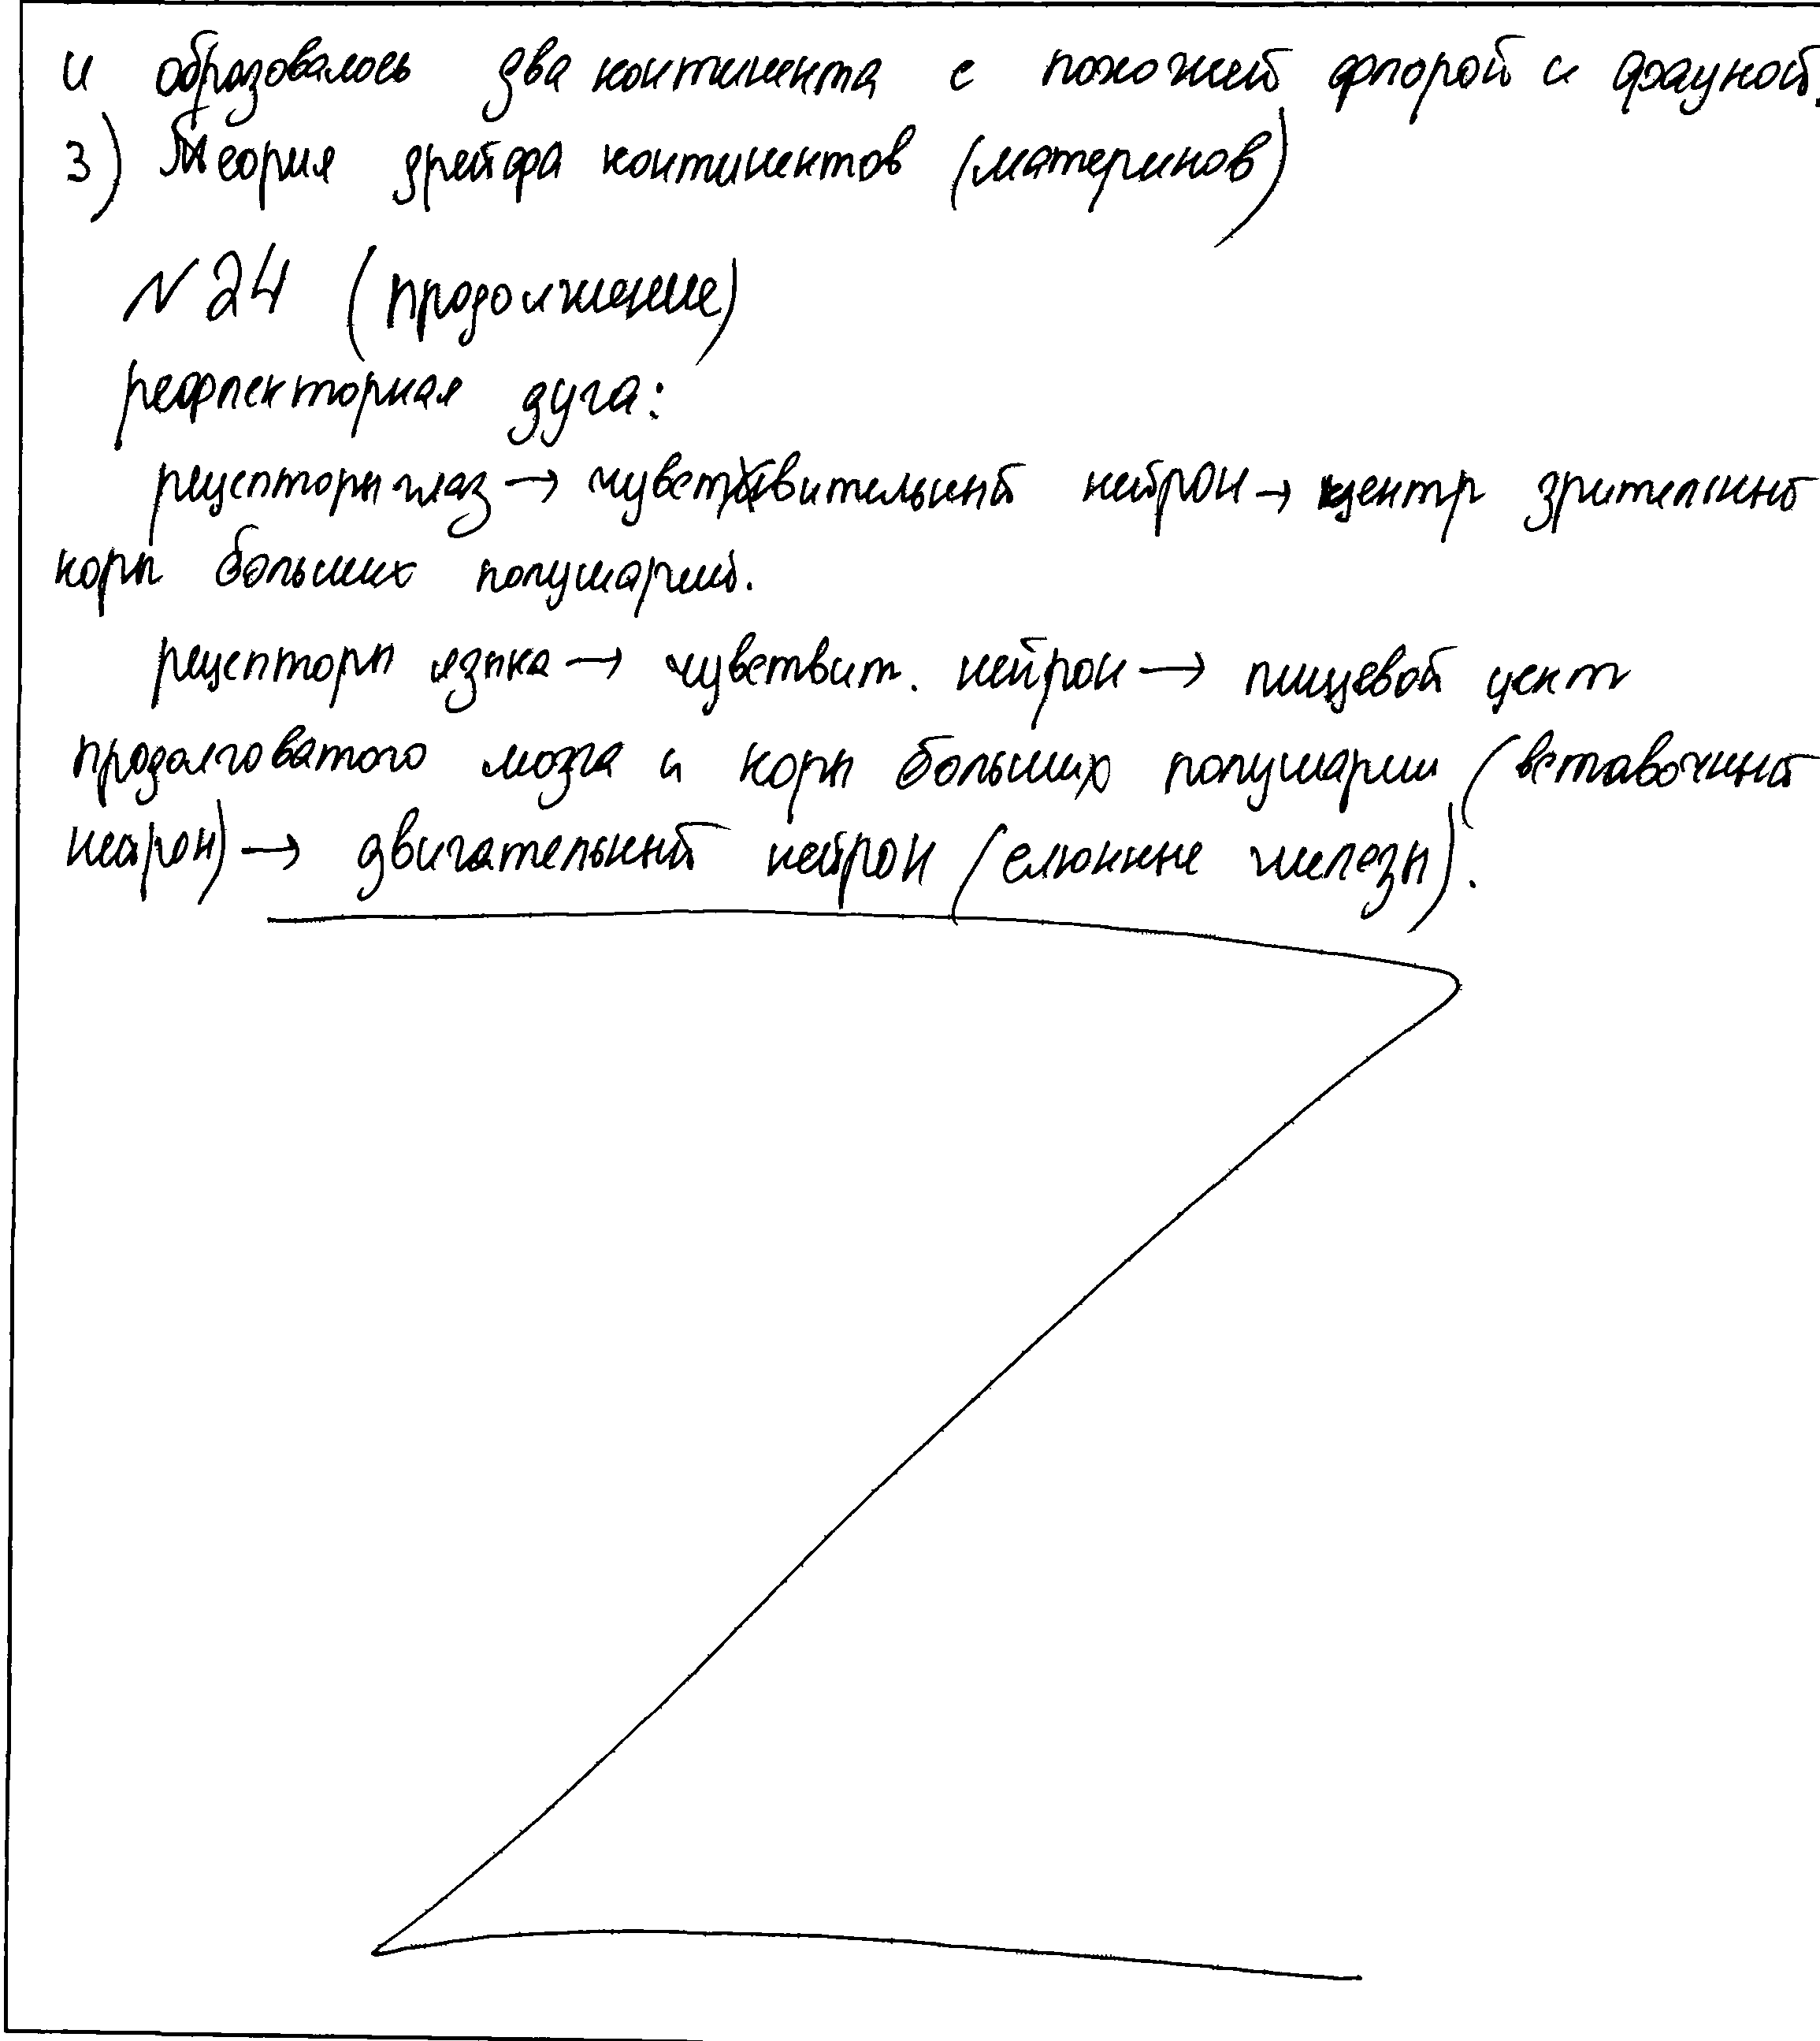 и образовалось два континента с похожей флорой и фауной.
3) Теория дрейфа континентов (материнов)
N 24 (продолжение)
рефлекторная дуга:
рецепторы глаз → чувствительный нейрон → центр зрительный
коры больших полушарий.
рецепторы языка → чувствит. нейрон → пищевой цент
продолговатого мозга и коры больших полушарии (вставочный
нейрон) → двигательный нейрон (слюнные железы).